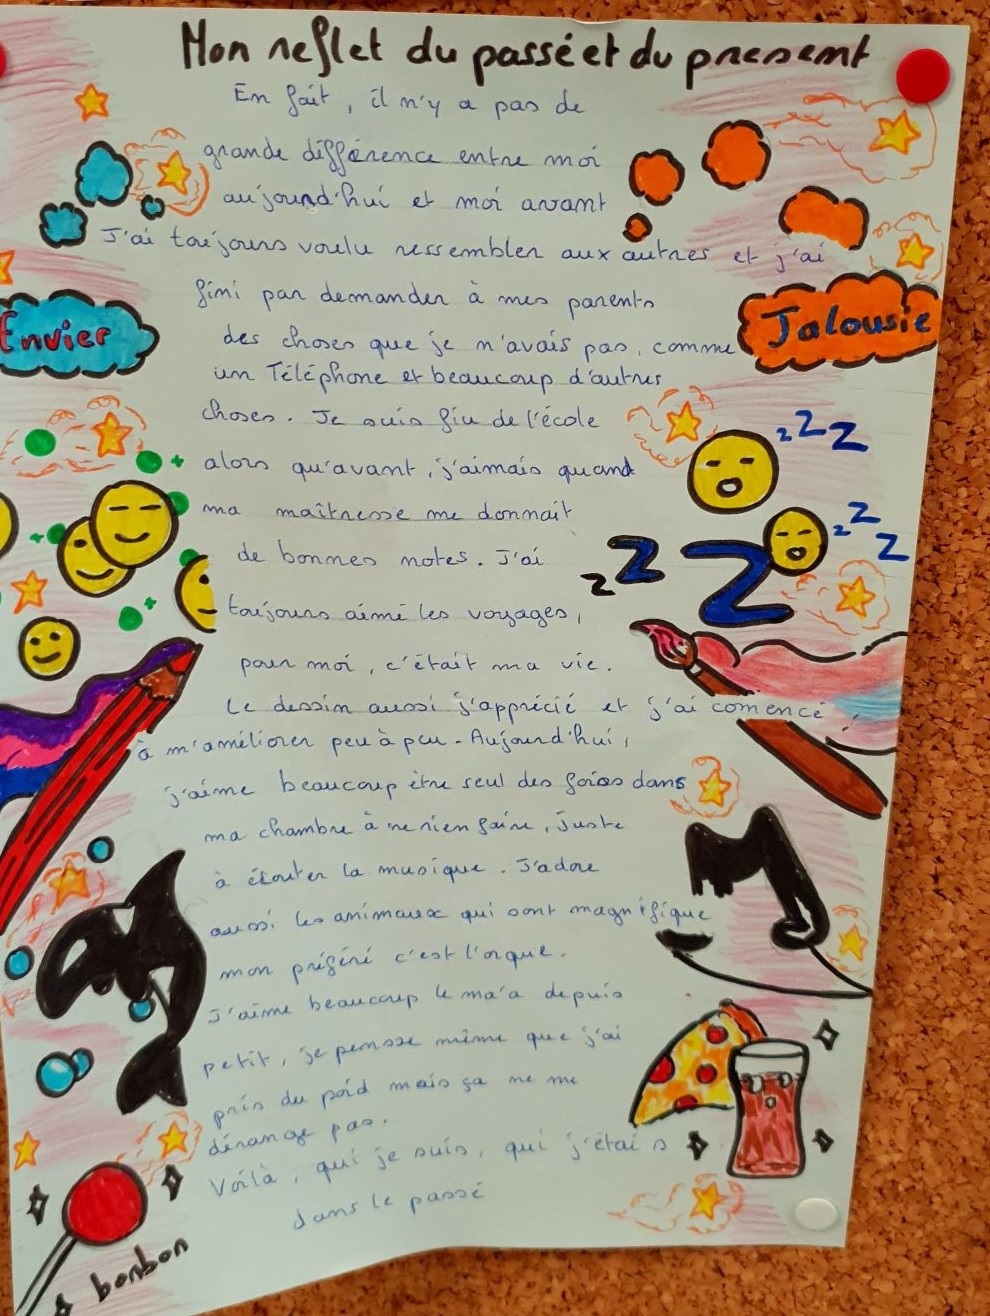 Mon reflet du passé et du present
En fait, il n'y a pas de
grande différence entre moi
aujourd'hui et moi avant
J'ai toujours voulu ressembler aux autres et j'ai
fini par demander à mes parents
Envier
Jalousie
des choses que je n'avais pas, comme
un Téléphone et beaucoup d'autres
choses. Je suis fiu de l'école
zzZ
alors qu'avant, j'aimais quand
ma maîtresse me donnait
zzZ
de bonnes notes. J'ai
zZZ
toujours aimé les voyages,
pour moi, c'était ma vie.
Le dessin aussi j'apprécié et j'ai comencé
à m'améliorer peu à peu. Aujourd'hui,
j'aime beaucoup être seul des foiss dans
ma chambre à ne rien faire, juste
à écouter la musique. J'adore
aussi les animaux qui sont magnifique
mon préféré c'est l'orque.
J'aime beaucoup le ma'a depuis
petit, je pensse même que j'ai
pris du poid mais ça ne me
dérange pas.
Voilà, qui je suis, qui j'étais
dans le passé
bonbon